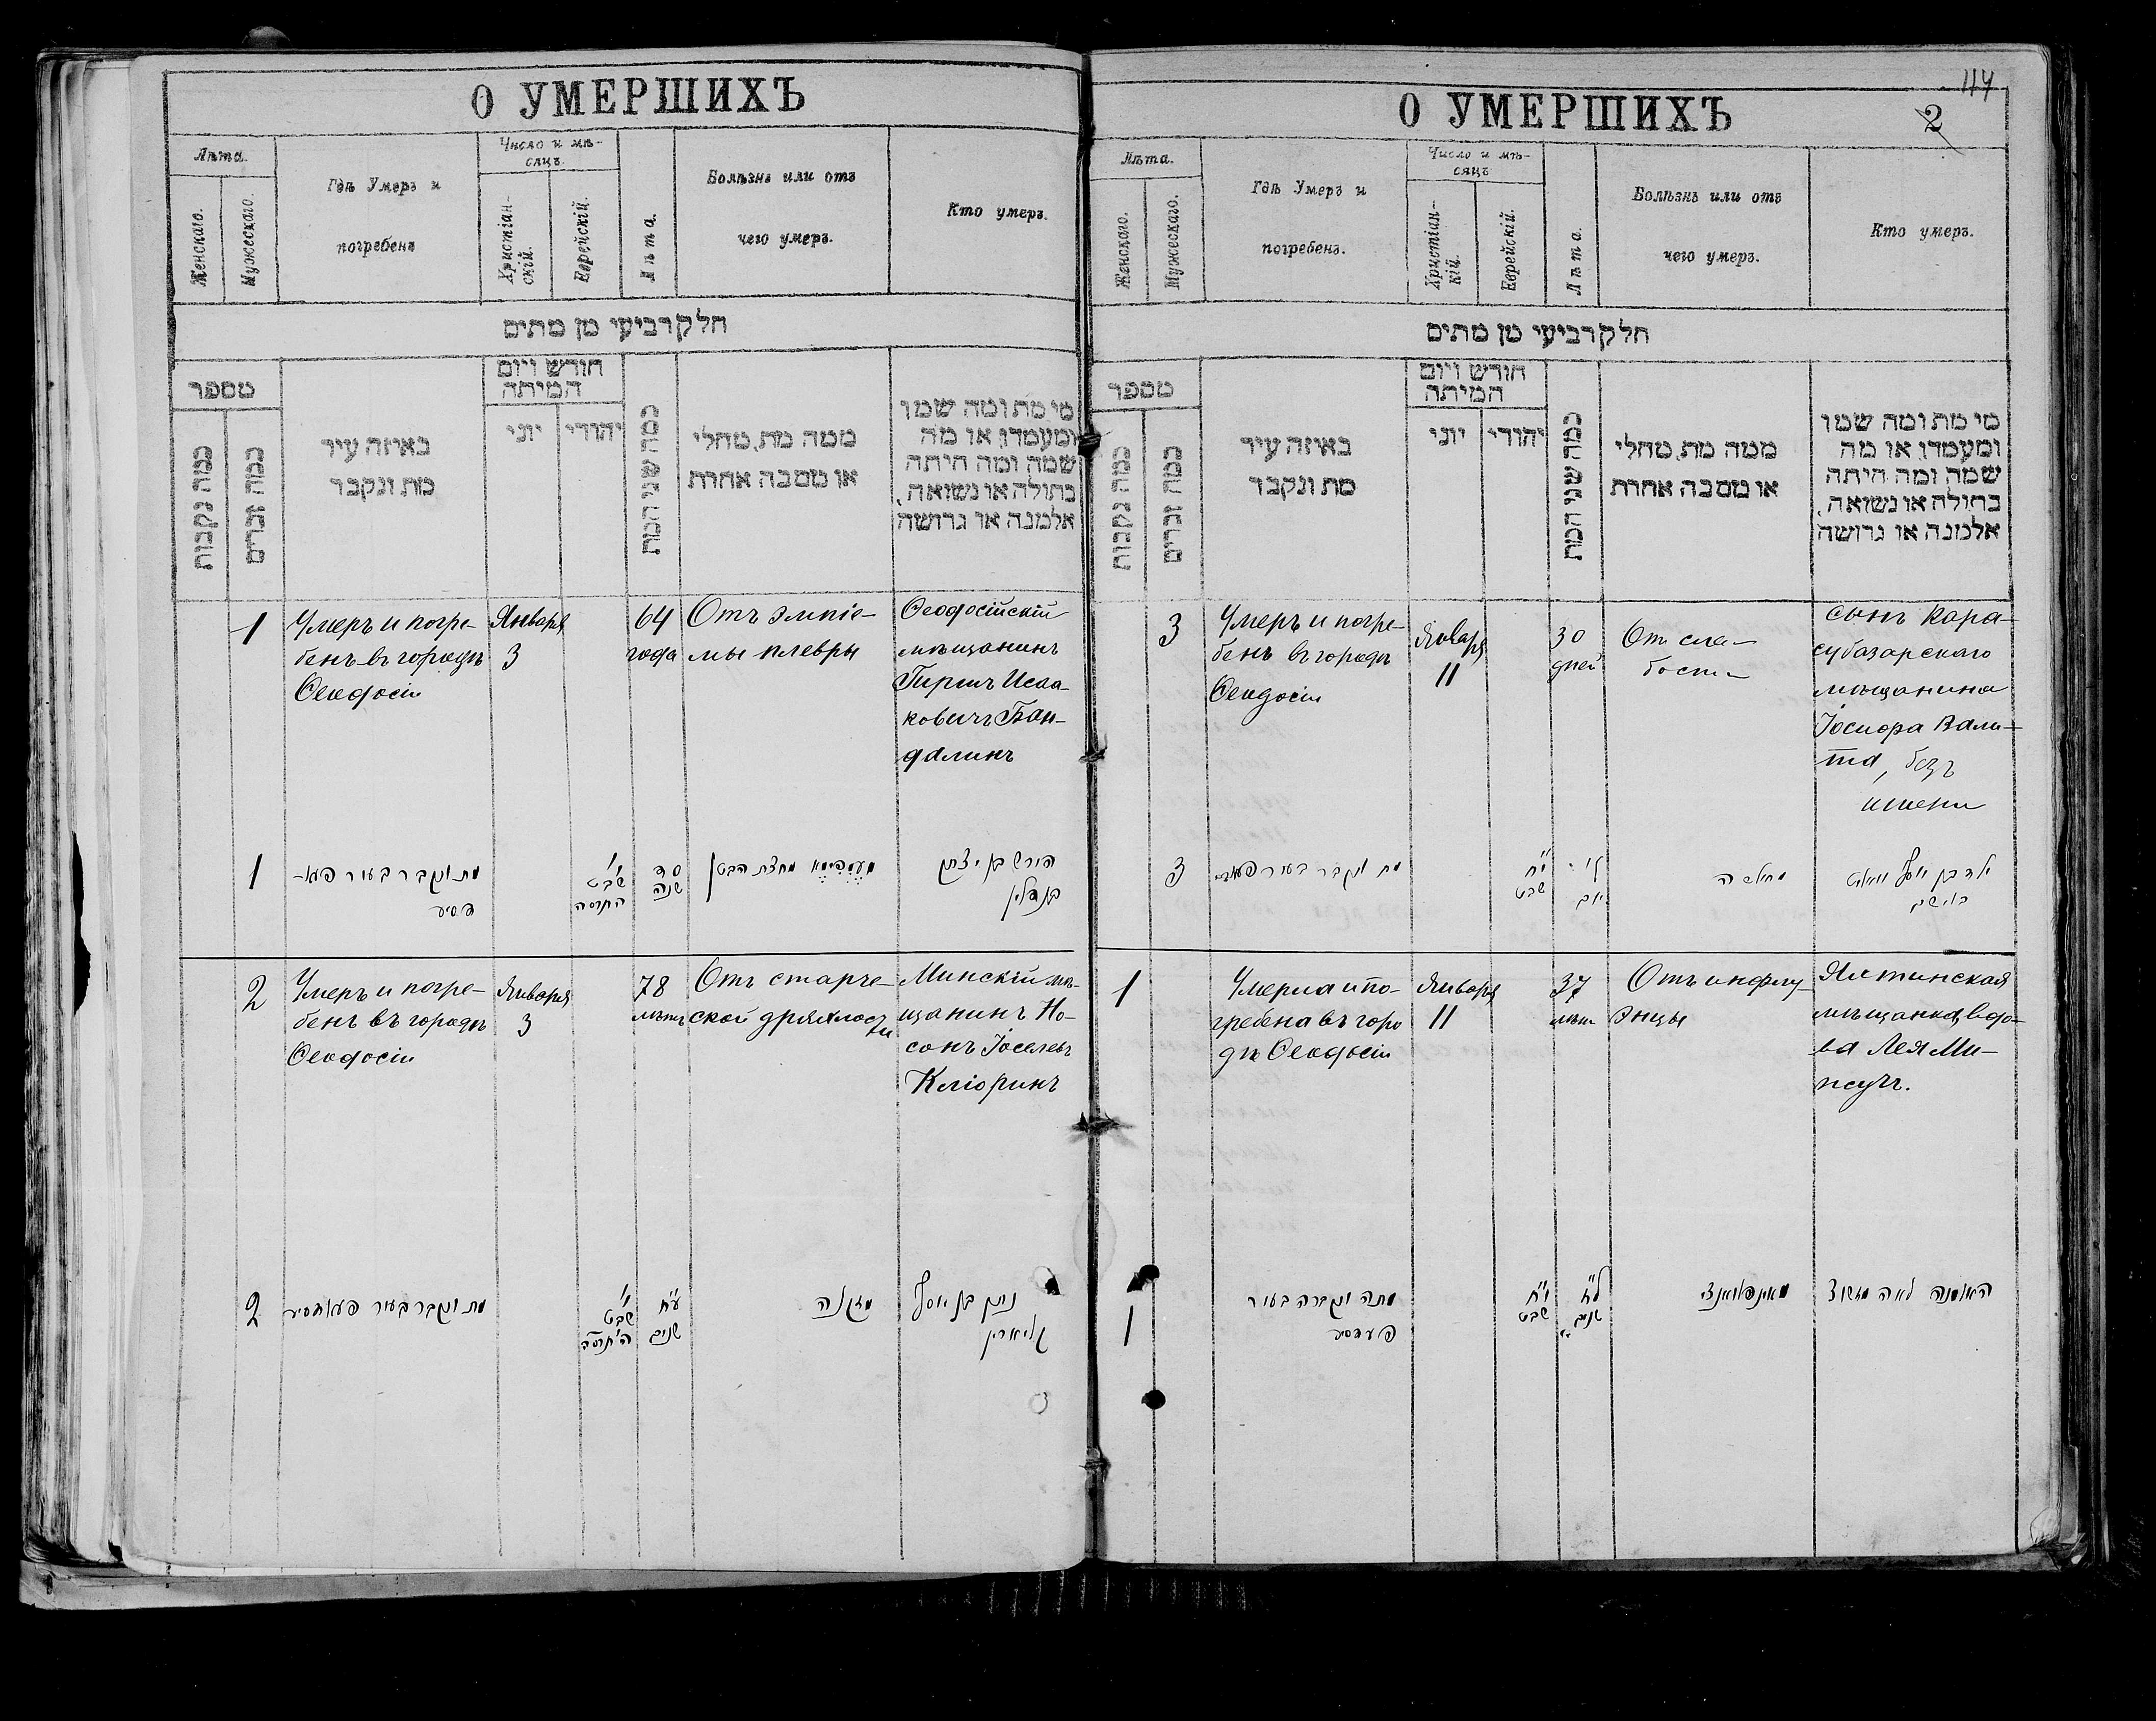 О УМЕРШИХЪ
Лѣта.
Женскаго.
Мужескаго.
Гдѣ Умеръ и
погребенъ
Число и мѣ-
сяцъ.
Христіан-
скій.
Еврейскій.
Лѣта.
Болѣзнь или отъ
чего умеръ.
Кто умеръ.
חלק רביעי מן מתים
מספר
כמה נקבות
כמה זכרים
באיזה עיר
מת ונקבר
חודש ויום
המיתה
יוני
יהודי
כמה שני המת
ממה מת, מחלי
או מסבה אחרת
מי מת ומה שמו
ומעמדו, או מה
שמה ומה היתה
בתולה או נשואה,
אלמנה או גרושה
1
Умеръ и погре-
бенъ въ городѣ
Ѳеодосіи
Января
3
64
года
Отъ эмпіе-
мы плевры
Ѳеодосійскій
мѣщанинъ
Гиршъ Исаа-
ковичъ Бан-
далинъ
1
מת ונקבר בעיר פעא-
דסיע
שבט
סד
שנה
הירש בן יצחק
בנדלין
2
Умеръ и погре-
бенъ въ городѣ
Ѳеодосіи
Января
3
78
лѣтъ
Отъ старче-
ской дряхлости
Минскій мѣ-
щанинъ Но-
сонъ Іоселевъ
Кліоринъ
2
מת ונקבר בעיר פעאדסיע
שבט
ע״ח
שנים
מזקנה
נתן בן יוסף
קליארין
О УМЕРШИХЪ
114
2
Лѣта.
Женскаго.
Мужескаго.
Гдѣ Умеръ и
погребенъ.
Число и мѣ-
сяцъ
Христіан-
кій.
Еврейскій.
Лѣта.
Болѣзнь или отъ
чего умеръ.
Кто умеръ.
חלק רביעי מן מתים
מספר
כמה נקבות
כמה זכרים
באיזה עיר
מת ונקבר
חודש ויום
המיתה
יוני
יהודי
כמה שני המת
ממה מת, מחלי
או מסבה אחרת
מי מת ומה שמו
ומעמדו, או מה
שמה ומה היתה
בתולה או נשואה,
אלמנה או גרושה
3
Умеръ и погре-
бенъ въ городѣ
Ѳеодосіи
Января
11
30
дней
От сла-
бости
сынъ Кара-
субазарскаго
мѣщанина
Іосифа Вали-
та, безъ
имени
3
מת ונקבר בעיר
י״ח
שבט
ל׳
יום
מחלשה
ילד בן יוסף וואליט
בלי שם
1
Умерла и по-
гребена въ горо
дѣ Ѳеодосіи
Января
11
37
лѣтъ
Отъ инфлу-
энцы
Ялтинская
мѣщанка, вдо-
ва Лея Ми-
1
מתה ונקברה בעיר
פעאדסיע
י״ח
שבט
שנים
מאינפלואנצי
האלמנה לאה